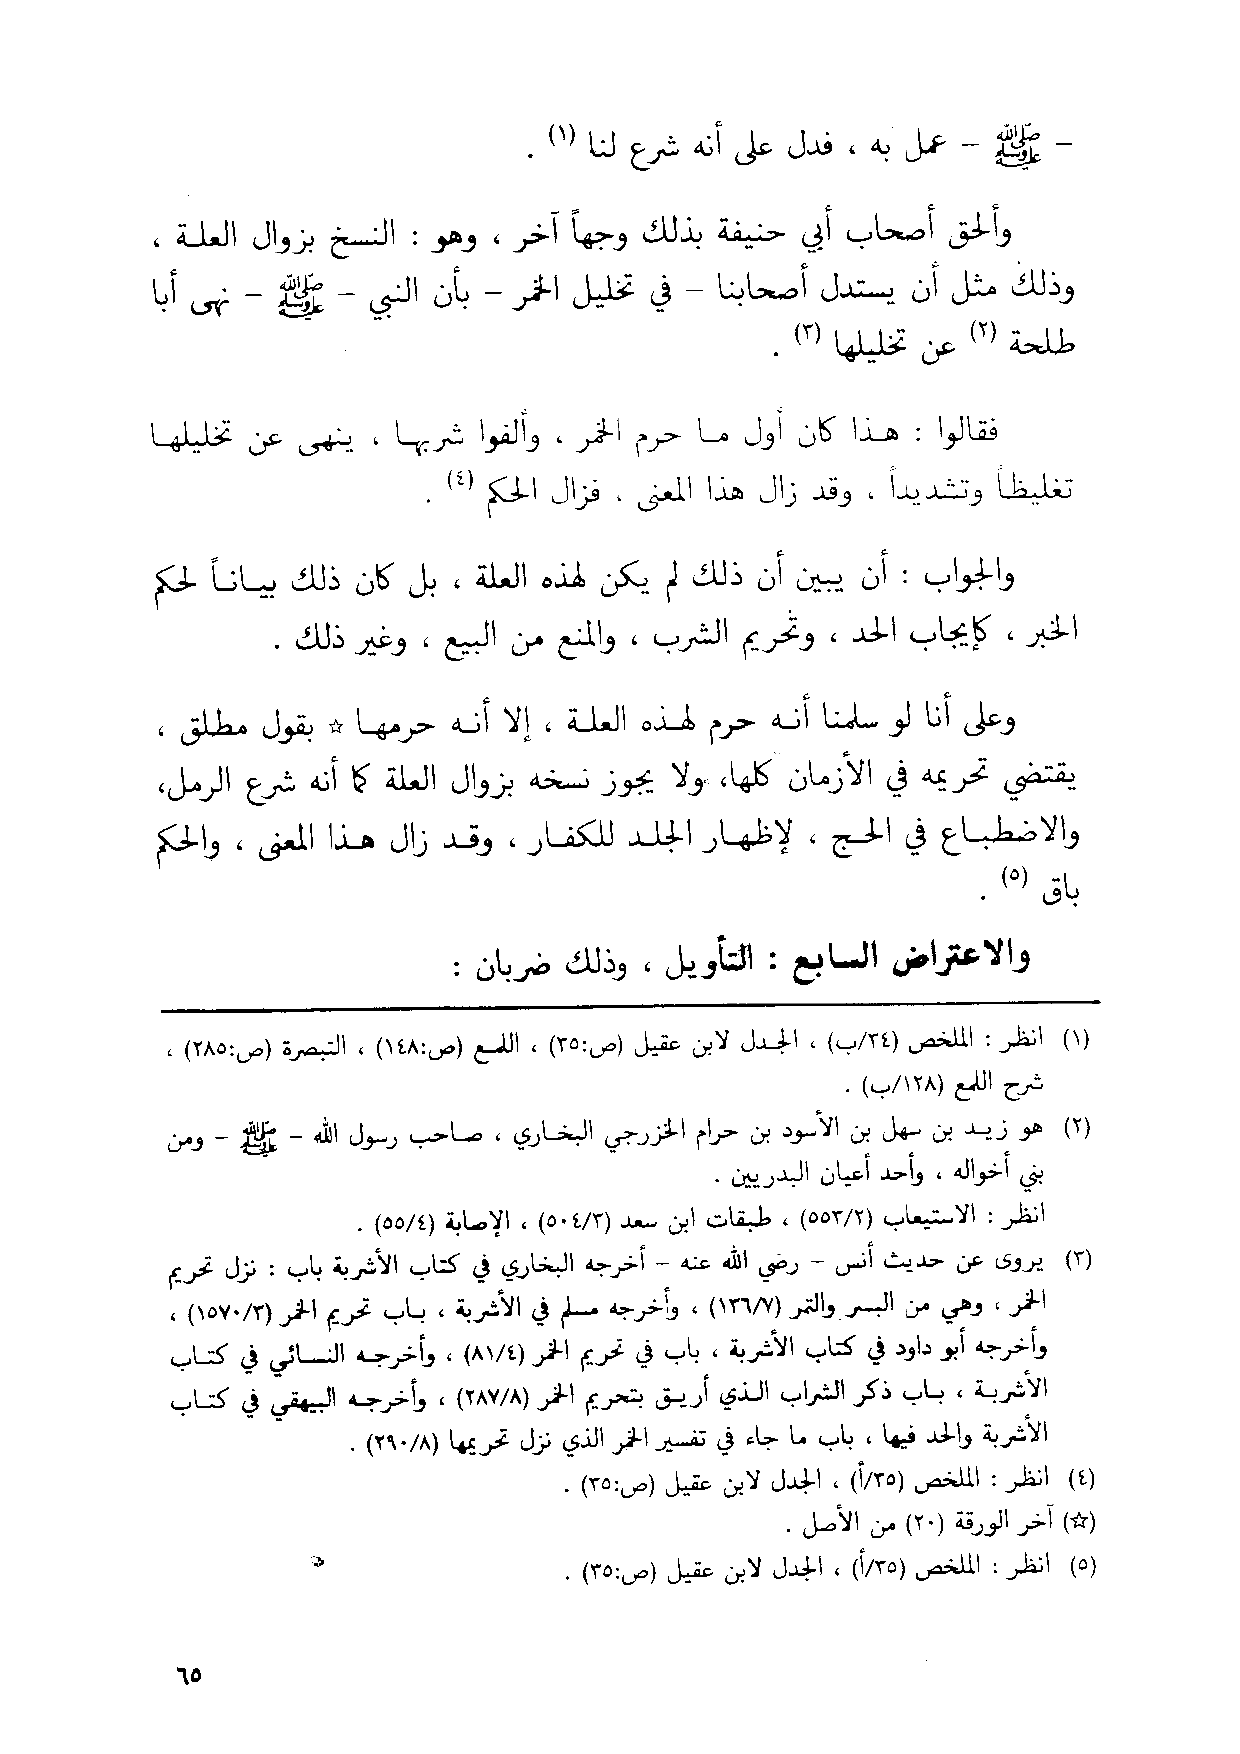 - ﷺ - عمل به ، فدل على أنه شرع لنا (١) .
وألحق أصحاب أبي حنيفة بذلك وجهاً آخر ، وهو : النسخ بزوال العلة ،
وذلك مثل أن يستدل أصحابنا - في تخليل الخمر - بأن النبي - ﷺ - نهى أبا
طلحة (٢) عن تخليلها (٣) .
فقالوا : هذا كان أول ما حرم الخمر ، وألفوا شربها ، ينهى عن تخليلها
تغليظاً وتشديداً ، وقد زال هذا المعنى ، فزال الحكم (٤) .
والجواب : أن يبين أن ذلك لم يكن لهذه العلة ، بل كان ذلك بياناً لحكم
الخبر ، كإيجاب الحد ، وتحريم الشرب ، والمنع من البيع ، وغير ذلك .
وعلى أنا لو سلمنا أنه حرم لهذه العلة ، إلا أنه حرمها ☆ بقول مطلق ،
يقتضي تحريمه في الأزمان كلها، ولا يجوز نسخه بزوال العلة كا أنه شرع الرمل،
والاضطباع في الحج ، لإظهار الجلد للكفار ، وقد زال هذا المعنى ، والحكم
باق (٥) .
والاعتراض السابع : التأويل ، وذلك ضربان :
(١) انظر : الملخص (٣٤/ب) ، الجدل لابن عقيل (ص:٣٥) ، اللمع (ص:١٤٨) ، التبصرة (ص:٢٨٥) ،
شرح اللمع (١٢٨/ب) .
(٢) هو زيد بن سهل بن الأسود بن حرام الخزرجي البخاري ، صاحب رسول الله - ﷺ - ومن
بني أخواله ، وأحد أعيان البدريين .
انظر : الاستيعاب (٥٥٣/٢) ، طبقات ابن سعد (٥٠٤/٣) ، الإصابة (٥٥/٤) .
(٣) يروى عن حديث أنس - رضي الله عنه - أخرجه البخاري في كتاب الأشربة باب : نزل تحريم
الخمر ، وهي من البسر والتمر (١٣٦/٧) ، وأخرجه مسلم في الأشربة ، باب تحريم الخمر (١٥٧٠/٣) ،
وأخرجه أبو داود في كتاب الأشربة ، باب في تحريم الخمر (٨١/٤) ، وأخرجه النسائي في كتاب
الأشربة ، باب ذكر الشراب الذي أريق بتحريم الخمر (٢٨٧/٨) ، وأخرجه البيهقي في كتاب
الأشربة والحد فيها ، باب ما جاء في تفسير الخمر الذي نزل تحريمها (٢٩٠/٨) .
(٤) انظر : الملخص (٣٥/أ) ، الجدل لابن عقيل (ص:٣٥) .
(☆) آخر الورقة (٢٠) من الأصل .
(٥) انظر : الملخص (٣٥/أ) ، الجدل لابن عقيل (ص:٣٥) .
٦٥